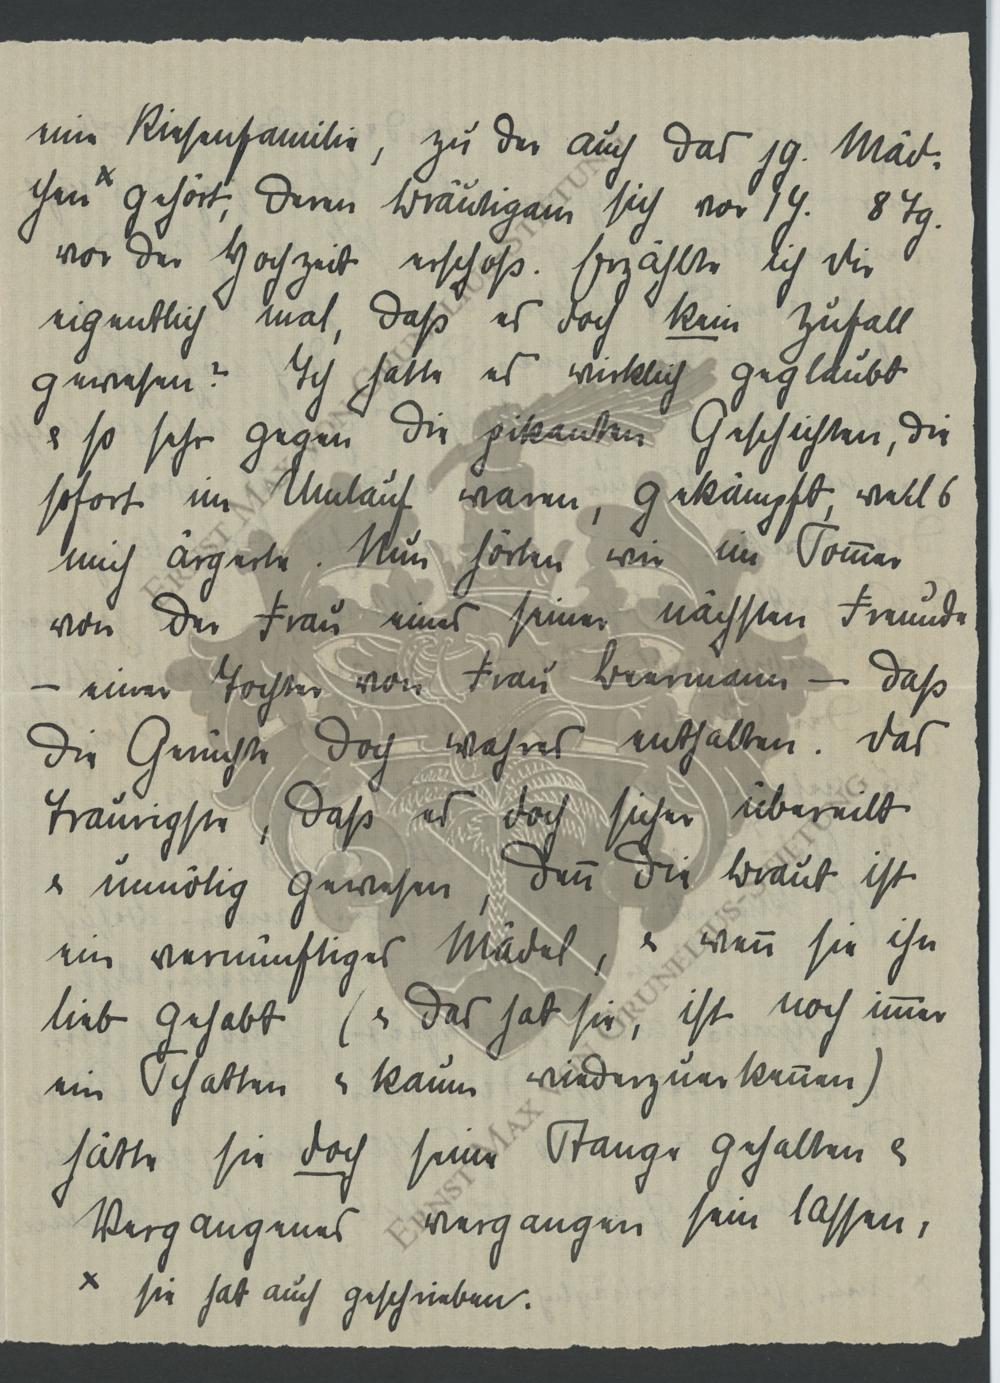 eine Riesenfamilie, zu der auch das jg. Mäd-
chen x gehört, deren Bräutigam sich vor 1 J. 8 Tg.
vor der Hochzeit erschoß. Erzählte ich Dir
eigentlich mal, daß es doch kein Zufall
gewesen? Ich hatte es wirklich geglaubt
& so sehr gegen die pikanten Geschichten, die
sofort im Umlauf waren, gekämpft, weil's
mich ärgerte. Nun hörten wir im Som̄er
von der Frau eines seiner nächsten Freunde
– einer Tochter von Frau Beermann – daß
die Gerüchte doch wahres enthalten. Das
Traurigste, daß es doch sicher übereilt
& unnötig gewesen, den̄ die Braut ist
ein vernünftiges Mädel, & wen̄ sie ihn
lieb gehabt (& das hat sie, ist noch im̄er
ein Schatten & kaum wiederzuerken̄en)
hätte sie doch seine Stange gehalten &
Vergangenes vergangen sein lassen,
x sie hat auch geschrieben.
ERNST MAX VON GRUNELIUS-STIFTUNG
ERNST MAX VON GRUNELIUS-STIFTUNG